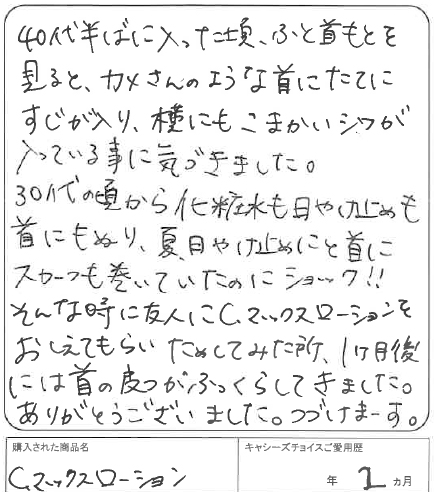 40代半ばに入った頃、ふと首もとを
見ると、カメさんのような首にたてに
すじが入り、横にもこまかいシワが
入っている事に気づきました。
30代の頃から化粧水も日やけ止めも
首にもぬり、夏日やけ止めにと首に
スカーフも巻いていたのにショック!!
そんな時に友人にC.マックスローションを
おしえてもらいためしてみた所、1ヶ月後
には首の皮フがふっくらしてきました。
ありがとうございました。つづけまーす。
購入された商品名
キャシーズチョイスご愛用歴
C.マックスローション
年 2 ヵ月